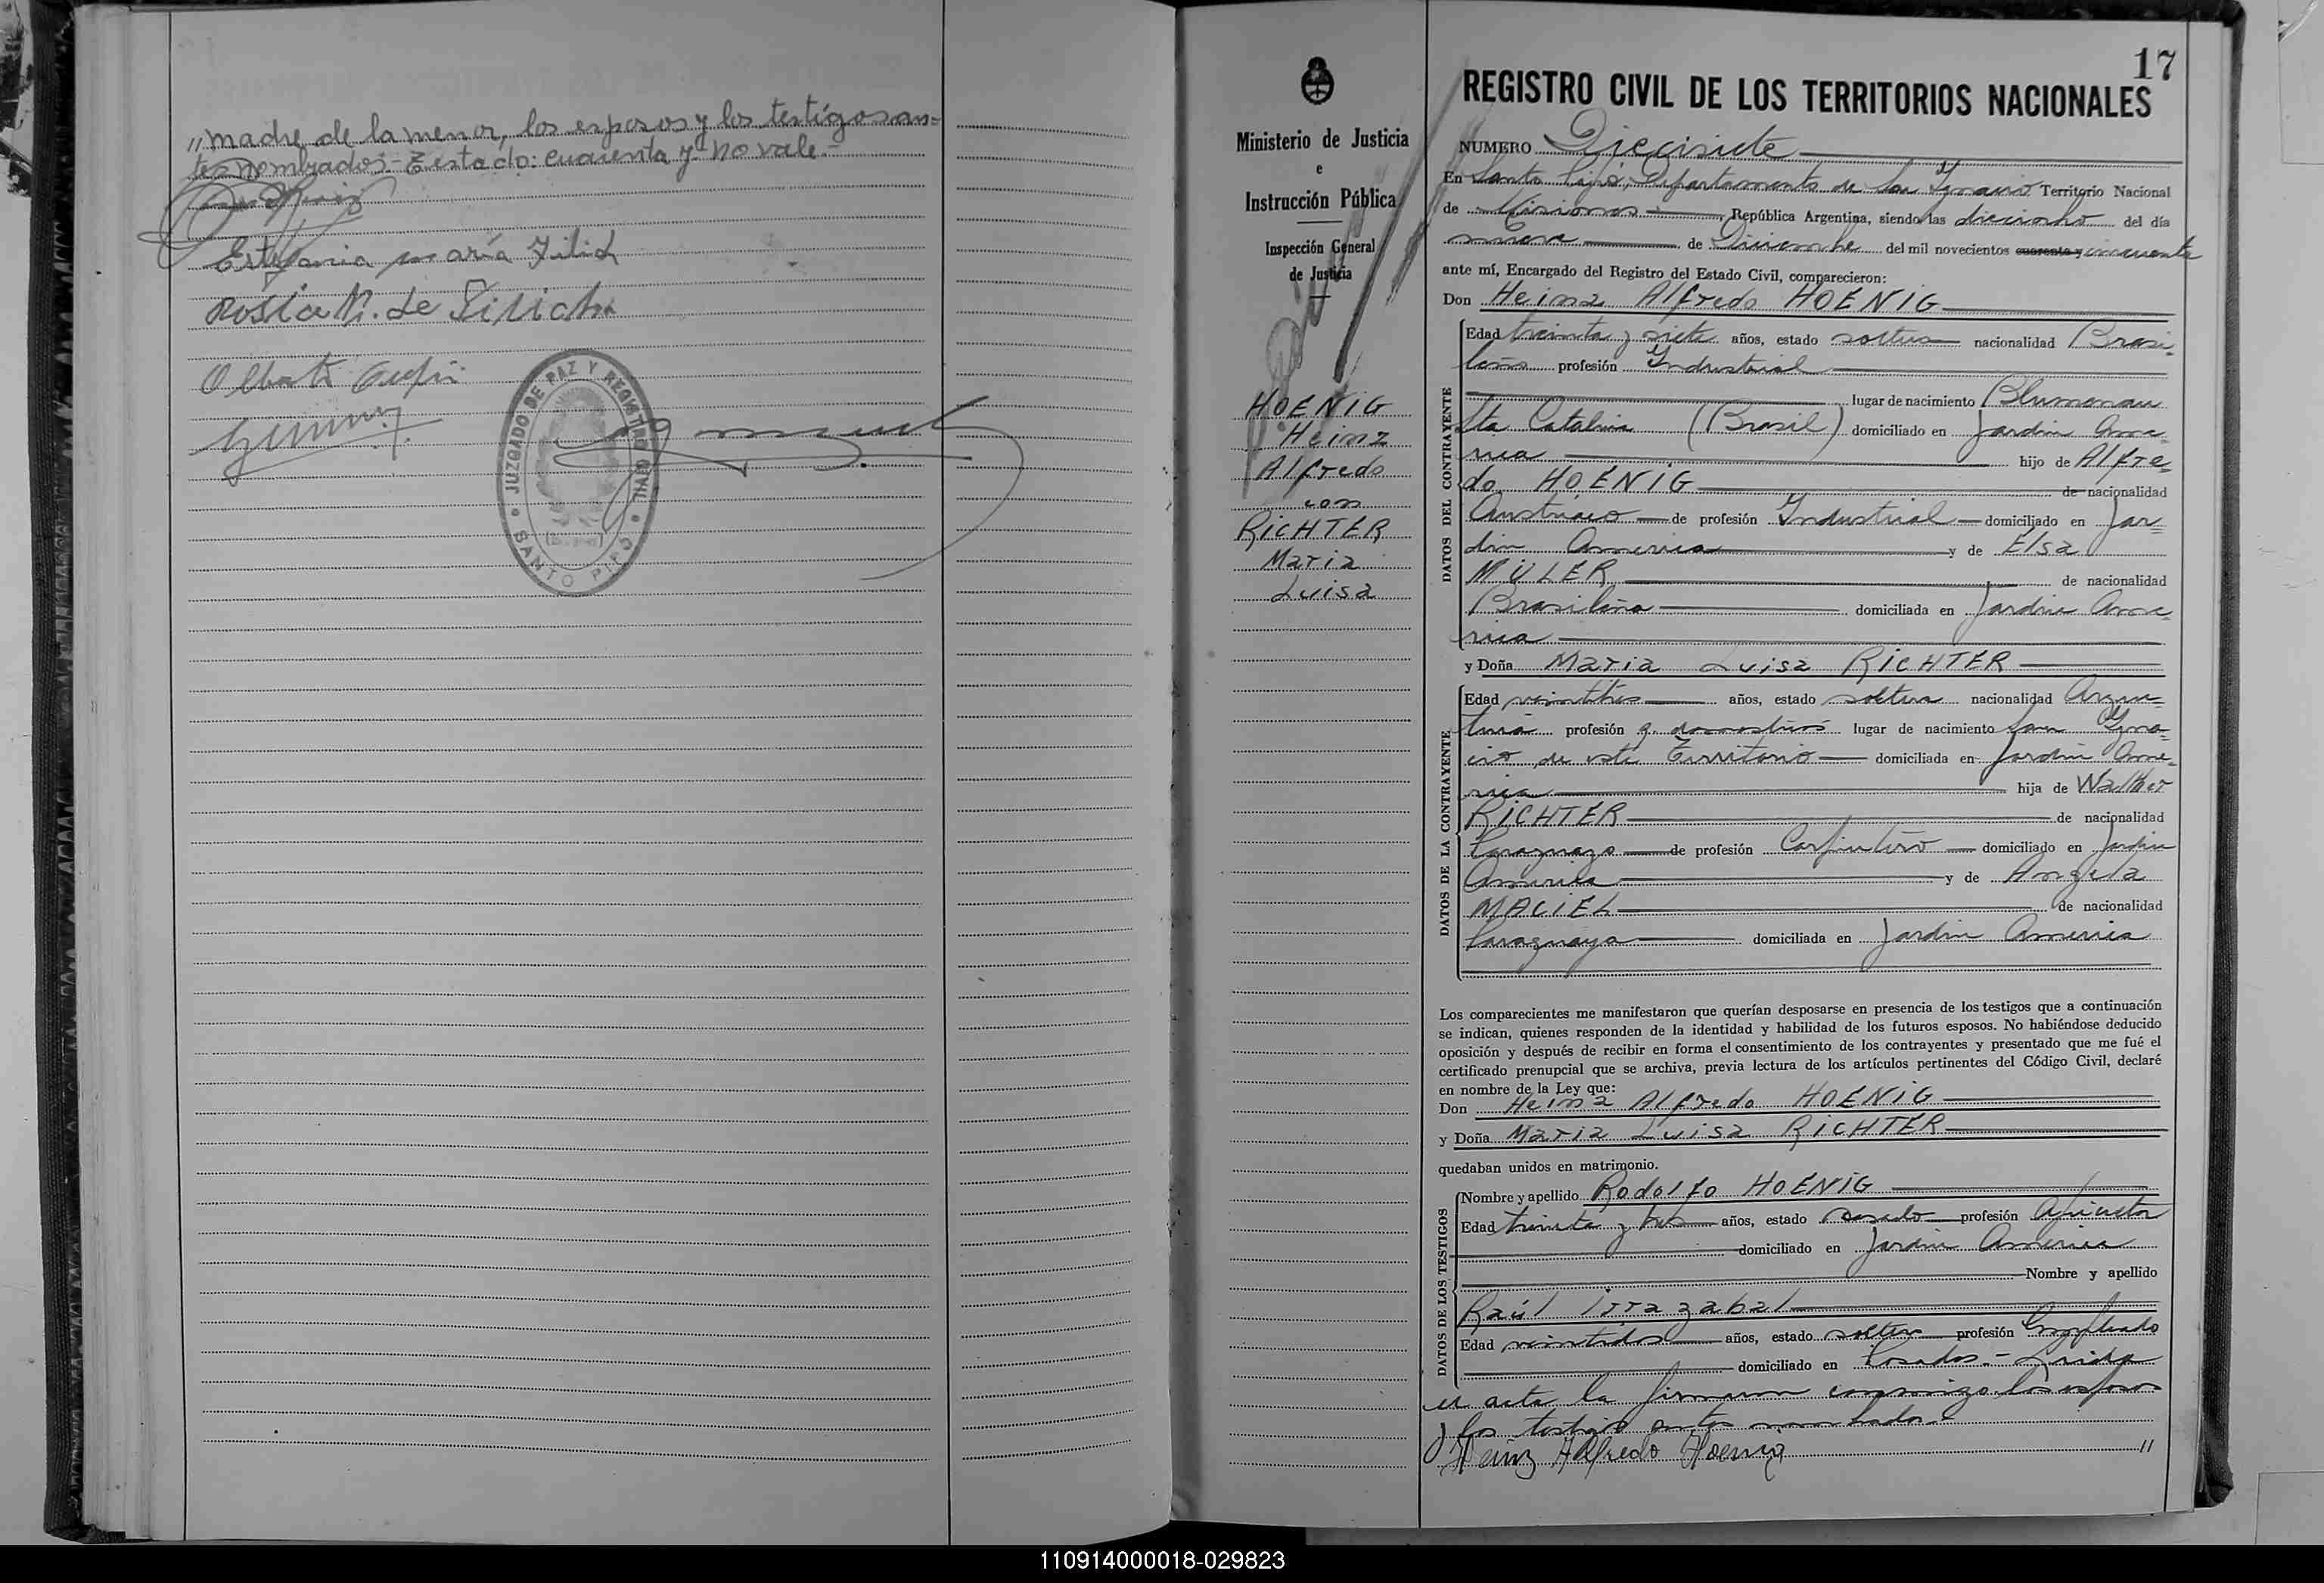 „ madre de la menor, los esposos y los testigos an-
tes nombrados.- Testado: cuarenta y. no vale.-
Estefania maría Filich
Rosa N. de Filich
JUZGADO DE PAZ Y REGISTRO CIVIL
SANTO PIPÓ
17
Ministerio de Justicia
e
Instrucción Pública
Inspección General
de Justicia
HOENIG
Heinz
Alfredo
con
RICHTER
Maria
Luisa
REGISTRO CIVIL DE LOS TERRITORIOS NACIONALES
NUMERO Diecisiete
En Santo Pipó, Departamento de San Ygnacio Territorio Nacional
de Misiones República Argentina, siendo las dieciocho del día
nueve de Diciembre del mil novecientos cuarenta y cincuenta
ante mí, Encargado del Registro del Estado Civil, comparecieron:
Don Heinz Alfredo HOENIG
DATOS DEL CONTRAYENTE
Edad treinta y siete años, estado soltero nacionalidad Brasi-
leño profesión Industrial
lugar de nacimiento Blumenau
Sta Catalina (Brasil) domiciliado en Jardin Ame-
rica hijo de Alfre-
do HOENIG de nacionalidad
Austriaco de profesión Yndustrial domiciliado en Jar-
din America y de Elsa
MULER de nacionalidad
Brasileña domiciliada en Jardin Ame-
rica
y Doña Maria Luisa RICHTER
DATOS DE LA CONTRAYENTE
Edad veintitres años, estado soltera nacionalidad Argen-
tina profesión q. domesticos lugar de nacimiento San Ygna-
cio de este Territorio domiciliada en Jardin Ame-
rica hija de Walther
RICHTER de nacionalidad
Paraguayo de profesión Carpintero domiciliado en Jardin
America y de Angela
MACIEL de nacionalidad
Paraguaya domiciliada en Jardin America
Los comparecientes me manifestaron que querían desposarse en presencia de los testigos que a continuación
se indican, quienes responden de la identidad y habilidad de los futuros esposos. No habiéndose deducido
oposición y después de recibir en forma el consentimiento de los contrayentes y presentado que me fué el
certificado prenupcial que se archiva, previa lectura de los artículos pertinentes del Código Civil, declaré
en nombre de la Ley que:
Don Heinz Alfredo HOENIG
y Doña Maria Luisa RICHTER
quedaban unidos en matrimonio.
DATOS DE LOS TESTIGOS
Nombre y apellido Rodolfo HOENIG
Edad treinta y tres años, estado casado profesión Agricultor
domiciliado en Jardin America
Nombre y apellido
Raúl Irrazabal
Edad veintidos años, estado soltero profesión Empleado
domiciliado en Posadas.- Leida
el acta la firmaron conmigo los esposos
y los testigos antes nombrados.-
Heinz Alfredo Hoenig "
110914000018-029823